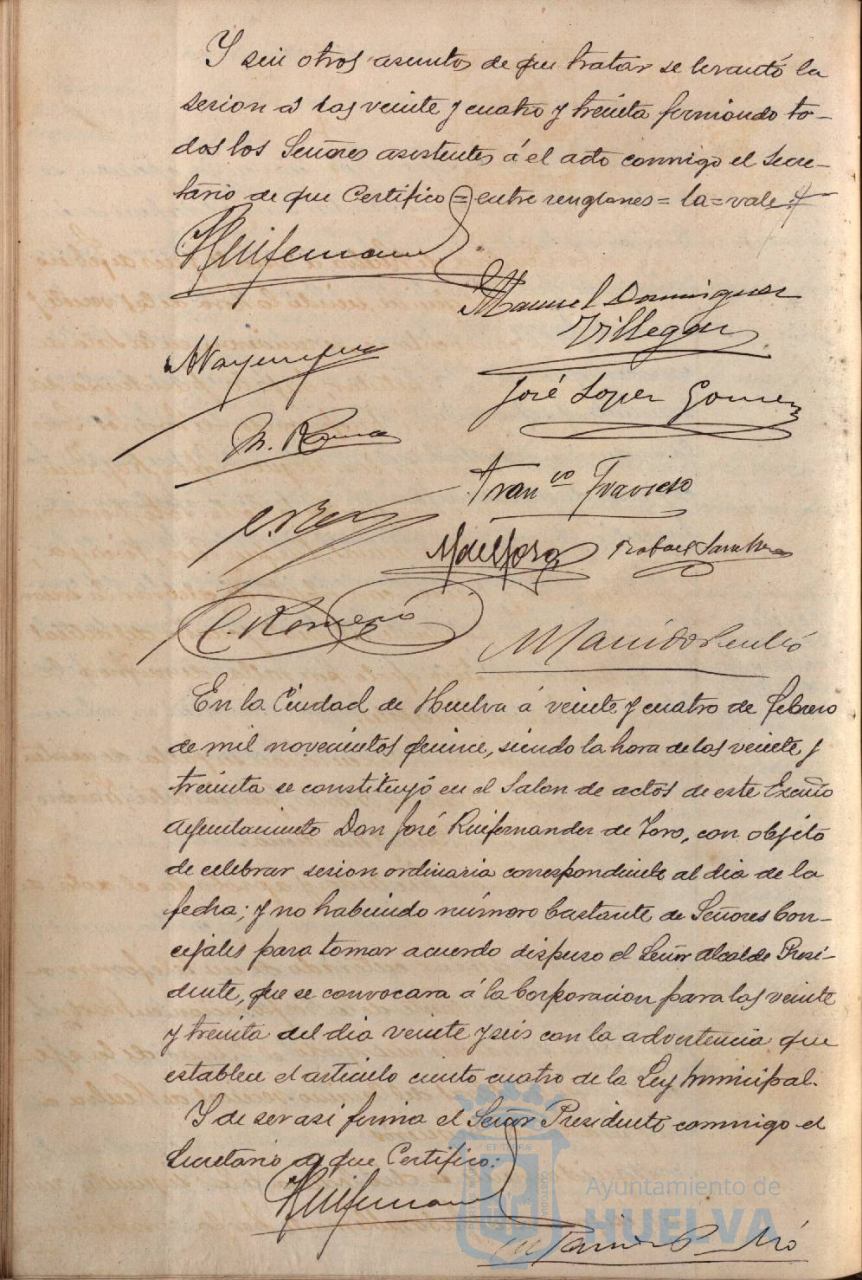 Y sin otros asuntos de que tratar se levantó la
sesion a las veinte y cuatro y treinta firmando to-
dos los Señores asistentes á el acto conmigo el Secre-
tario de que Certifico = entre renglones = la = vale
Ruifernandez
Manuel Dominguez
Villegas
José Lopez Gomez
M. Roma
Fran co Travieso
Rafael Sanchez
C. Romero
En la Ciudad de Huelva á veinte y cuatro de febrero
de mil novecientos quince, siendo la hora de las veinte y
treinta se constituyó en el Salon de actos de este Excmo
Ayuntamiento Don José Ruifernandez de Toro, con objeto
de celebrar sesion ordinaria correspondiente al dia de la
fecha; y no habiendo número bastante de Señores Con-
cejales para tomar acuerdo dispuso el Señor Alcalde Presi-
dente, que se convocara á la Corporacion para las veinte
y treinta del dia veinte y seis con la advertencia que
establece el articulo ciento cuatro de la Ley municipal.
Y de ser asi firma el Señor Presidente conmigo el
Secretario de que Certifico:
Ruifernandez
Ayuntamiento de
HUELVA